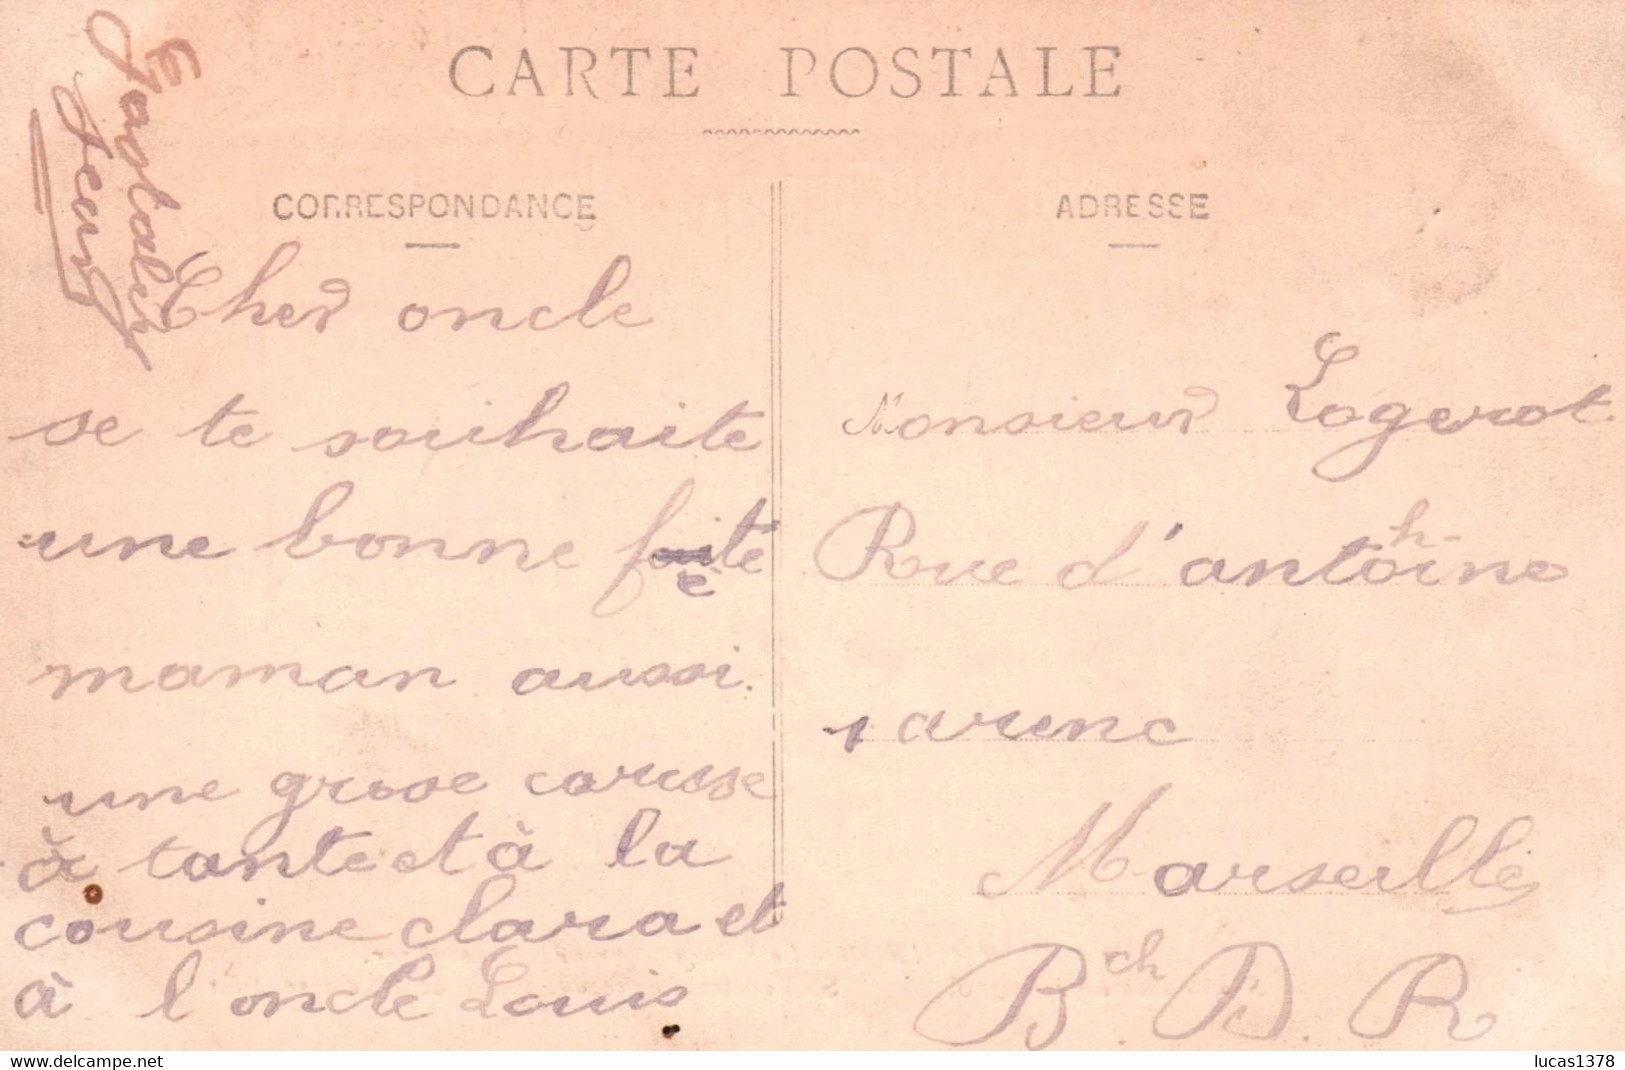 CARTE POSTALE
CORRESPONDANCE
ADRESSE
Jean
Cher oncle
se te souhaite
une bonne fête
maman aussi.
une grose caresse
à tante et à la
cousine clara et
à l'oncle Louis
Monsieur Logerot
Rue d'anthoine
arenc
Marseille
Bch D. R
Delcampe.net
lucas1378